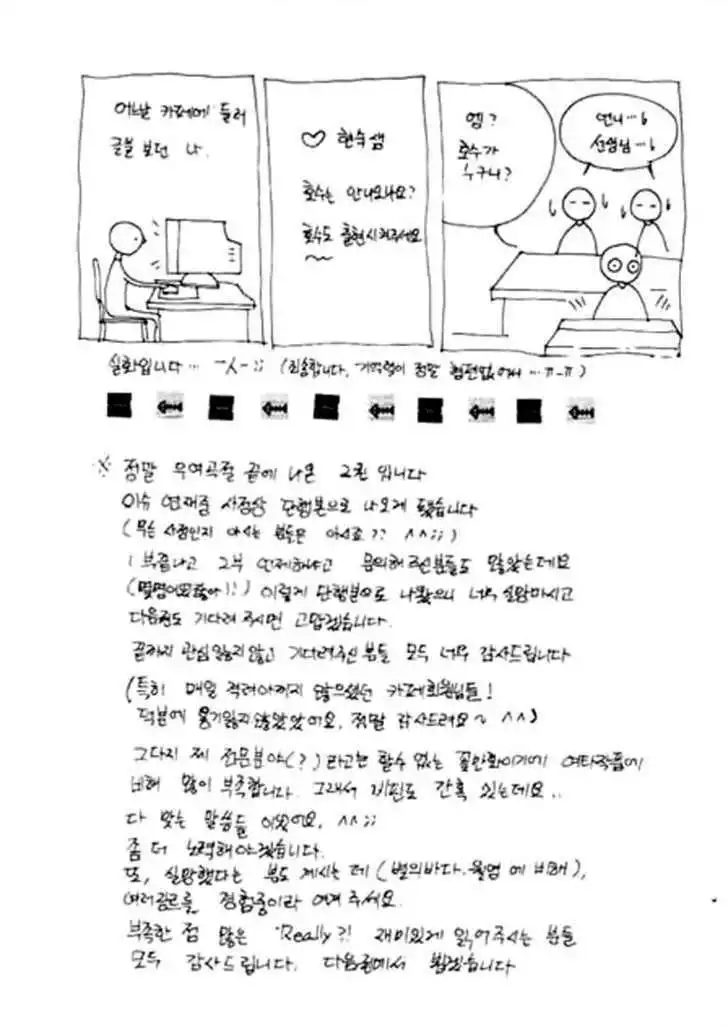 어느날 카페에 들러
글을 보던 나.
♡ 현숙샘
호수는 안나오나요?
호수도 출현시켜주세요
~~
엥?
호수가
누구니?
언니…!
선생님…!
실화입니다… ㅡㅅ-;; (죄송합니다. 기억력이 정말 형편없어서…ㅠ-ㅠ)
※ 정말 우여곡절 끝에 나온 2권 입니다
이슈 연재중 사정상 단행본으로 나오게 됐습니다
(무슨 사정인지 아시는 분들은 아시죠?? ^^;;)
1부끝나고 2부 언제하냐고 문의해 주신분들도 많았는데요
이렇게 단행본으로 나왔으니 너무 실망마시고
다음권도 기다려 주시면 고맙겠습니다.
끝까지 관심잃지않고 기다려주신 분들 모두 너무 감사드립니다
(특히 매일 격려아끼지 않으셨던 카페회원님들!
덕분에 용기잃지않았았어요. 정말 감사드려요~ ^^)
그다지 제 전문분야(?)라고는 할수 없는 꽃만화이기에 여타작품에
비해 많이 부족합니다. 그래서 비판도 간혹 있는데요..
다 맞는 말씀들 이였어요. ^^;;
좀 더 노력해야겠습니다.
또, 실망했다는 분도 계시는 데 (별의바다. 월명 에 비해),
여러장르를 경험중이라 여겨 주세요.
부족한 점 많은 'Really?! 재미있게 읽어주시는 분들
모두 감사드립니다. 다음권에서 뵙겠습니다